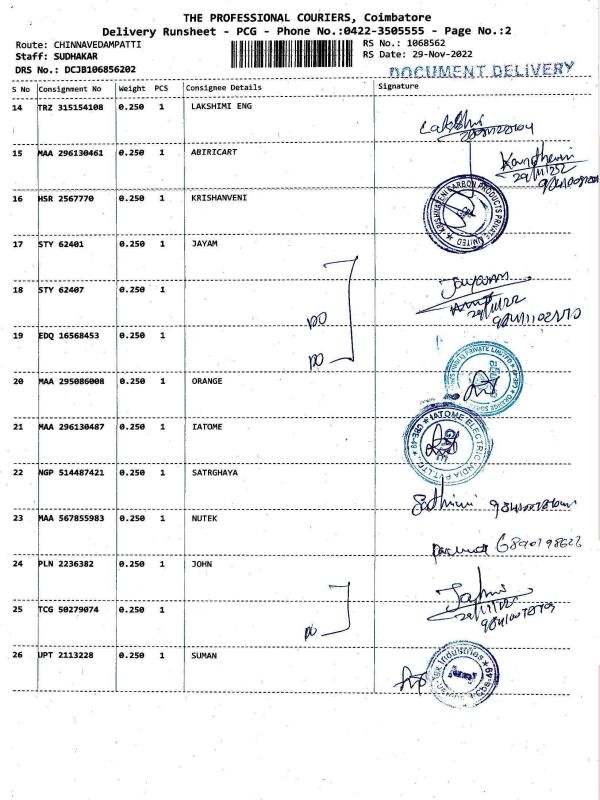 THE PROFESSIONAL COURIERS, Coimbatore
Delivery Runsheet - PCG - Phone No.:0422-3505555 - Page No.:2
Route: CHINNAVEDAMPATTI RS No.: 1068562
Staff: SUDHAKAR RS Date: 29-Nov-2022
DRS No.: DCJB106856202 DOCUMENT DELIVERY
S No Consignment No Weight PCS Consignee Details Signature
14 TRZ 315154108 0.250 1 LAKSHIMI ENG
Lakshmi
15 MAA 296130461 0.250 1 ABIRICART
16 HSR 2567770 0.250 1 KRISHANVENI
KRISHNAVENI CARBON PRODUCTS PRIVATE LIMITED
17 STY 62401 0.250 1 JAYAM
18 STY 62407 0.250 1
DO
29/11/22
19 EDQ 16568453 0.250 1
DO
20 MAA 295086008 0.250 1 ORANGE
21 MAA 296130487 0.250 1 IATOME
IATOME ELECTRIC INDIA PVT LTD
22 NGP 514487421 0.250 1 SATRGHAYA
23 MAA 567855983 0.250 1 NUTEK
24 PLN 2236382 0.250 1 JOHN
25 TCG 50279074 0.250 1
DO
26 UPT 2113228 0.250 1 SUMAN